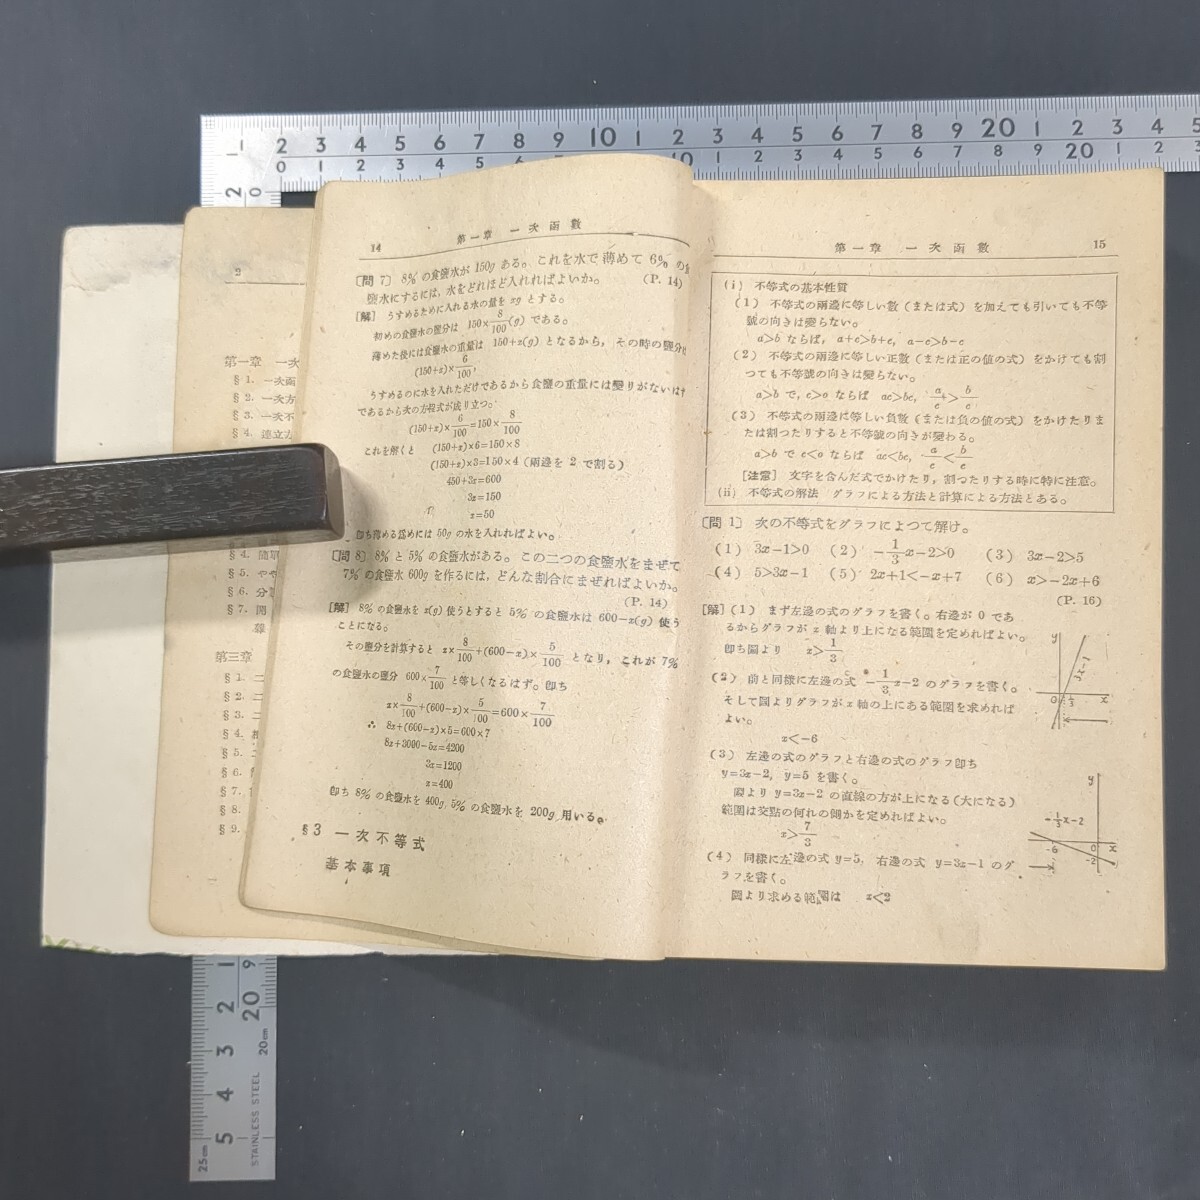 14 第一章 一次函數
〔問 7〕 8% の食鹽水が 150g ある。これを水で薄めて 6% の
鹽水にするには，水をどれほど入れればよいか。 (P. 14)
〔解〕 うすめるために入れる水の量を xg とする。
初めの食鹽水の鹽分は 150×8/100(g) である。
薄めた後には食鹽水の重量は 150+x(g) となるから，その時の鹽分は
(150+x)×6/100,
うすめるのに水を入れただけであるから食鹽の重量には變りがないは
であるから次の方程式が成り立つ。
(150+x)×6/100=150×8/100
これを解くと (150+x)×6=150×8
(150+x)×3=150×4 (兩邊を 2 で割る)
450+3x=600
3x=150
x=50
即ち薄める爲めには 50g の水を入れればよい。
〔問 8〕 8% と 5% の食鹽水がある。この二つの食鹽水をまぜて
7% の食鹽水 600g を作るには，どんな割合にまぜればよいか。
(P. 14)
〔解〕 8% の食鹽水を x(g) 使うとすると 5% の食鹽水は 600-x(g) 使う
ことになる。
その鹽分を計算すると x×8/100+(600-x)×5/100 となり，これが 7%
の食鹽水の鹽分 600×7/100 と等しくなるはず。即ち
x×8/100+(600-x)×5/100=600×7/100
∴ 8x+(600-x)×5=600×7
8x+3000-5x=4200
3x=1200
x=400
即ち 8% の食鹽水を 400g, 5% の食鹽水を 200g 用いる。
§3 一次不等式
基本事項
第一章 一次函數 15
(i) 不等式の基本性質
(1) 不等式の兩邊に等しい數 (または式) を加えても引いても不等
號の向きは變らない。
a>b ならば，a+c>b+c, a-c>b-c
(2) 不等式の兩邊に等しい正數 (または正の値の式) をかけても割
つても不等號の向きは變らない。
a>b で，c>o ならば ac>bc, a/c>b/c
(3) 不等式の兩邊に等しい負數 (または負の値の式) をかけたりま
たは割つたりすると不等號の向きが變わる。
a>b で c<o ならば ac<bc, a/c<b/c
〔注意〕 文字を含んだ式でかけたり，割つたりする時に特に注意。
(ii) 不等式の解法 グラフによる方法と計算による方法とある。
〔問 1〕 次の不等式をグラフによつて解け。
(1) 3x-1>0 (2) -1/3x-2>0 (3) 3x-2>5
(4) 5>3x-1 (5) 2x+1<-x+7 (6) x>-2x+6
(P. 16)
〔解〕 (1) まず左邊の式のグラフを書く。右邊が 0 であ
るからグラフが x 軸より上になる範圍を定めればよい。
即ち圖より x>1/3
(2) 前と同樣に左邊の式 -1/3x-2 のグラフを書く。
そして図よりグラフが x 軸の上にある範圍を求めれば
よい。
x<-6
(3) 左邊の式のグラフと右邊の式のグラフ即ち
y=3x-2, y=5 を書く。
圖より y=3x-2 の直線の方が上になる (大になる)
範圍は交點の何れの側かを定めればよい。
x>7/3
(4) 同樣に左邊の式 y=5, 右邊の式 y=3x-1 のグ
ラフを書く。
圖より求める範圍は x<2
y
3x-1
0 1/3 x
y
-1/3x-2
-6 0 x
-2
2
第一章 一次
§ 1. 一次函
§ 2. 一次方
§ 3. 一次不
§ 4. 連立方
§ 4. 簡單
§ 5. やや
§ 6. 分
§ 7. 開
雜
第三章
§ 1. 二
§ 2. 二
§ 3. 二
§ 4.
§ 5. 二
§ 6.
§ 7.
§ 8.
§ 9.
1 2 3 4 5 6 7 8 9 10 1 2 3 4 5 6 7 8 9 20 1 2 3 4 5
0 1 2 3 4 5 10 1 2 3 4 5 6 7 8 9 20 1 2 3
2 0
1 2 3 4 5
9 20
20cm
25cm
STAINLESS STEEL